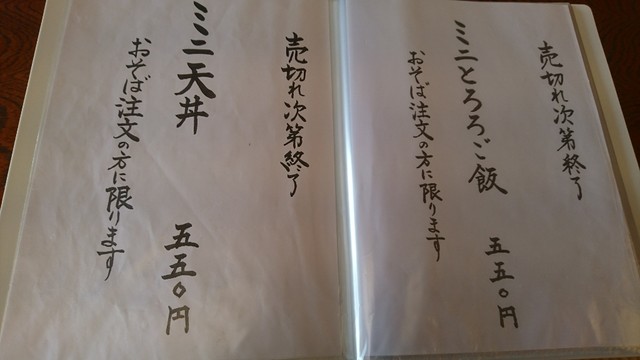 売切れ次第終了
ミニとろろご飯 五五〇円
おそば注文の方に限ります
売切れ次第終了
ミニ天丼 五五〇円
おそば注文の方に限ります